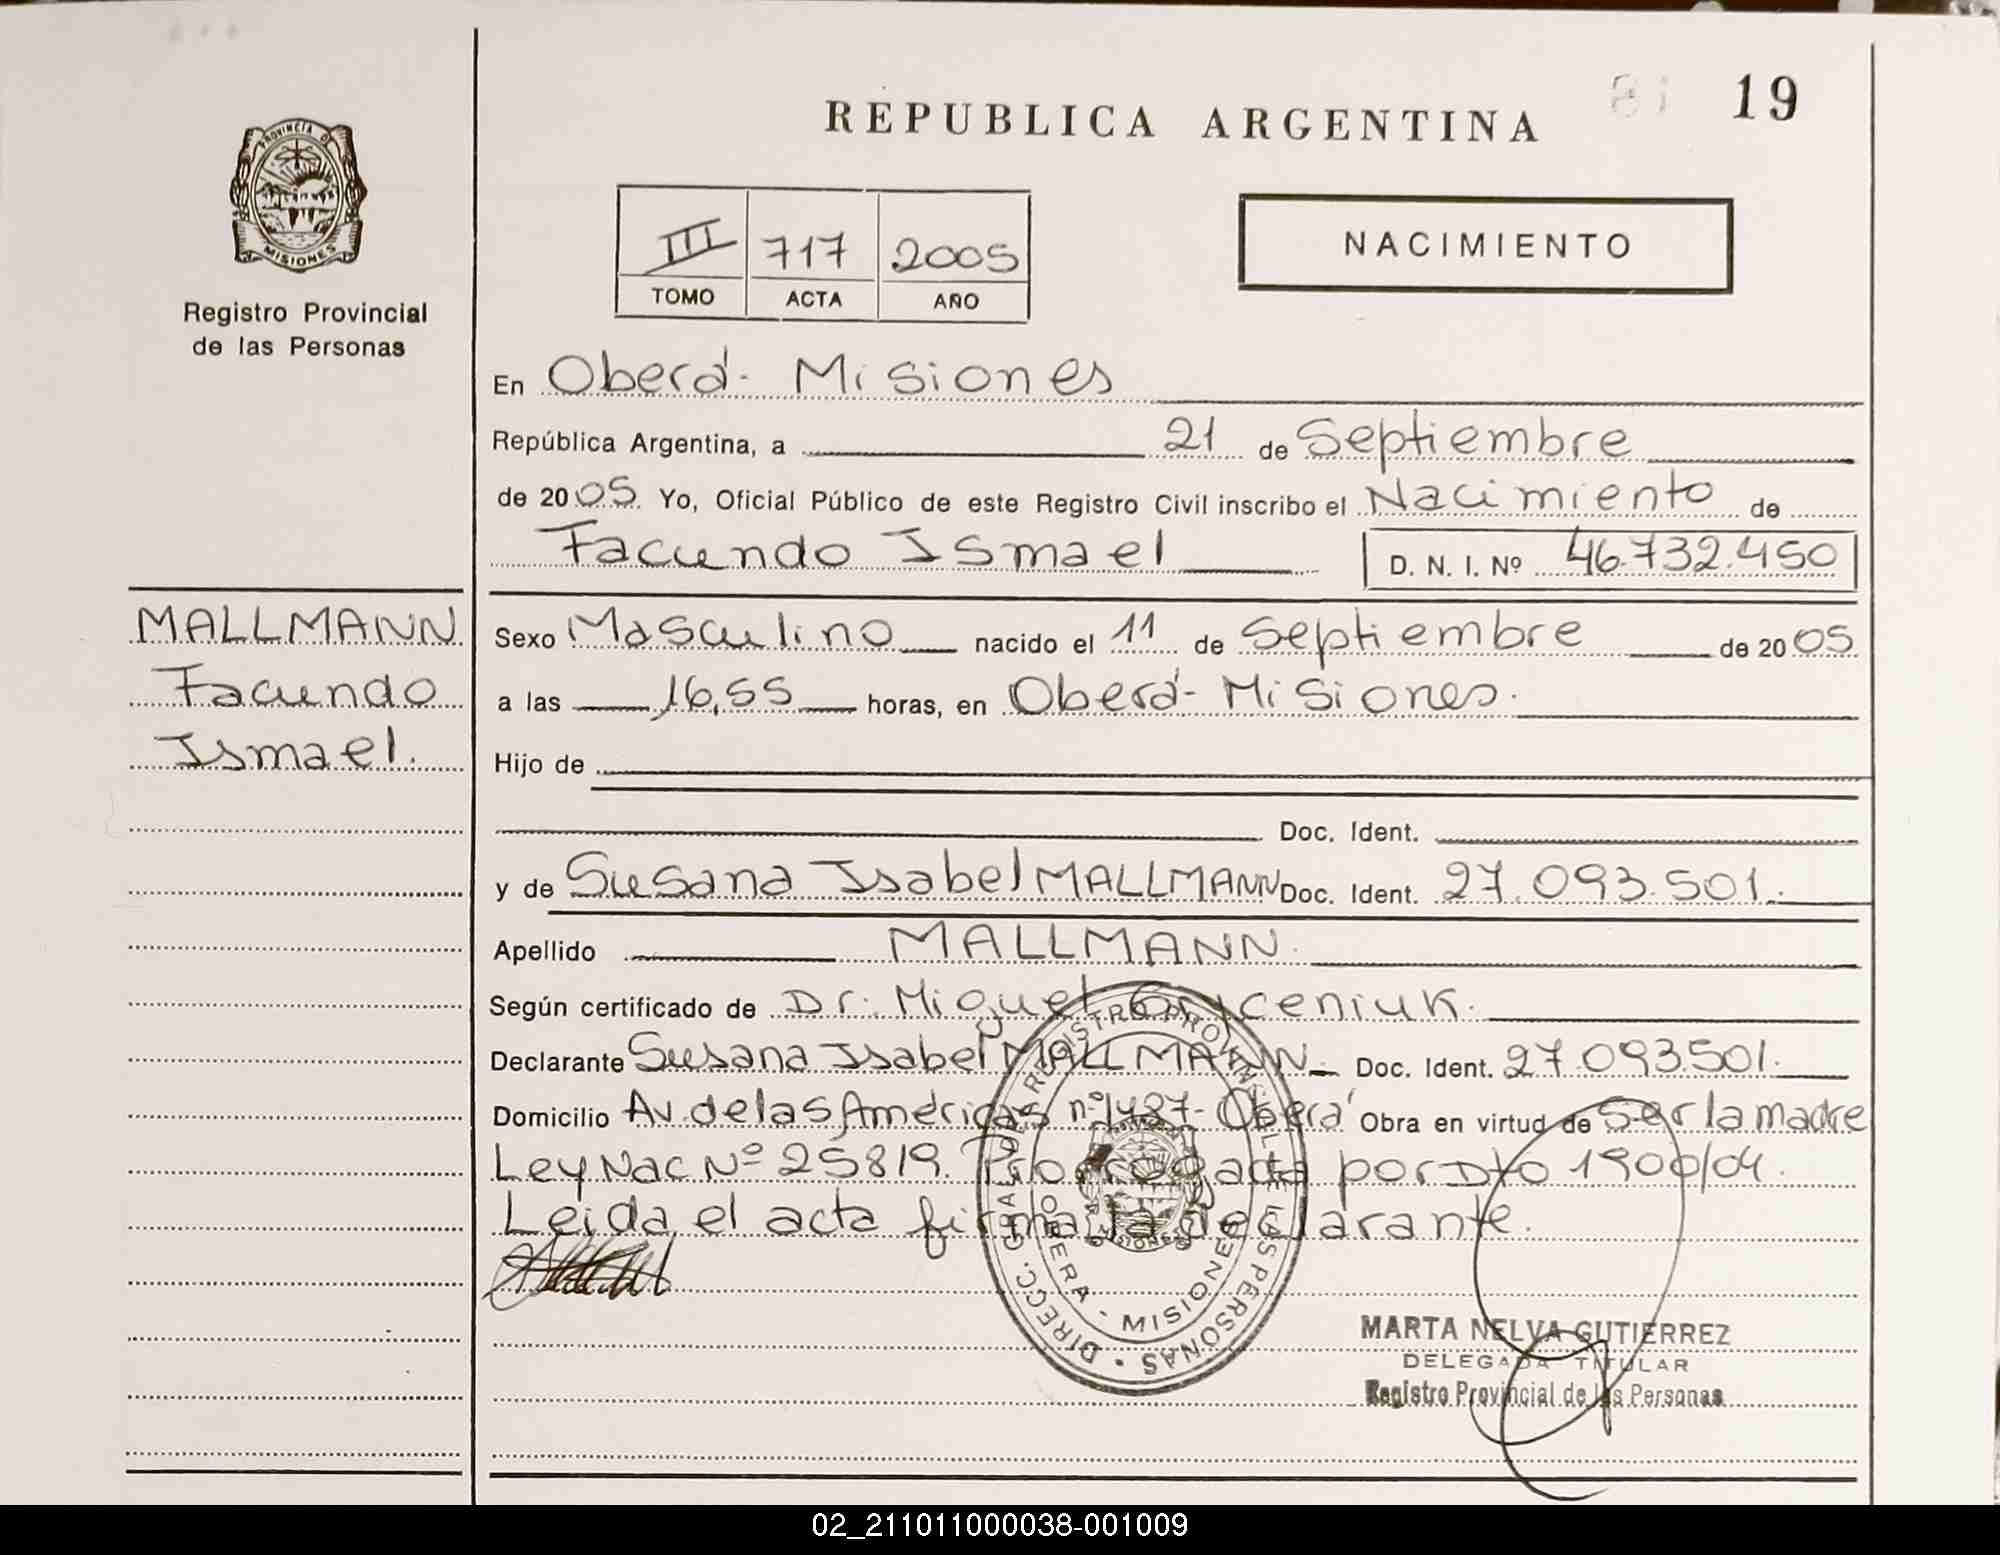 19
REPUBLICA ARGENTINA
PROVINCIA D
MISIONES
Registro Provincial
de las Personas
III 717 2005
TOMO ACTA AÑO
NACIMIENTO
En Oberá - Misiones
República Argentina, a 21 de Septiembre
de 2005 Yo, Oficial Público de este Registro Civil inscribo el Nacimiento de
Facundo Ismael D. N. I. Nº 46.732.450
MALLMANN
Facundo
Ismael.
Sexo Masculino nacido el 11 de Septiembre de 2005
a las 16,55 horas, en Oberá - Misiones.
Hijo de
Doc. Ident.
y de Susana Isabel MALLMANN Doc. Ident. 27.093.501.
Apellido MALLMANN.
Según certificado de Dr. Miguel
Declarante Susana Isabel MALLMANN Doc. Ident. 27.093.501.
Domicilio Av. de las Américas nº 1487 - Oberá Obra en virtud de Ser la madre
Ley Nac Nº 25819. Prorrogada por Dto 1900/04.
Leida el acta firma la declarante.
DIRECC. GRAL. DEL REGISTRO PROVINCIAL DE LAS PERSONAS
OBERA - MISIONES
MARTA NELVA GUTIERREZ
DELEGADA TITULAR
Registro Provincial de las Personas
02_211011000038-001009